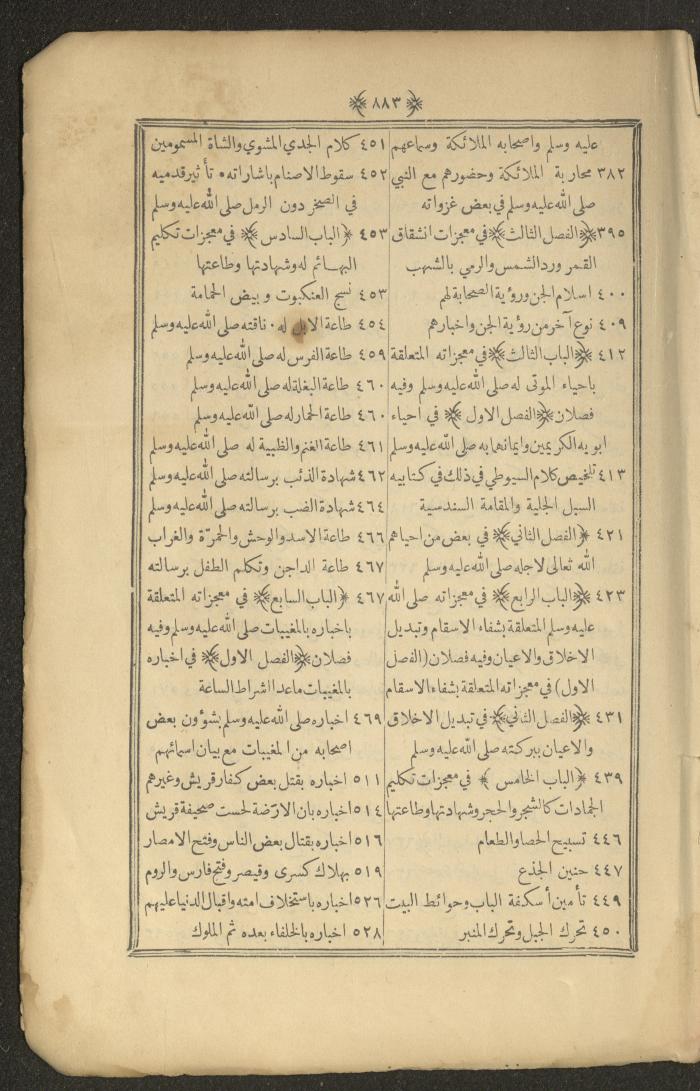 ﴿٨٨٣﴾
عليه وسلم واصحابه الملائكة وسماعهم
٣٨٢ محاربة الملائكة وحضورهم مع النبي
صلى الله عليه وسلم في بعض غزواته
٣٩٥ ﴿الفصل الثالث﴾ في معجزات انشقاق
القمر ورد الشمس والرمي بالشهب
٤٠٠ اسلام الجن ورؤية الصحابة لهم
٤٠٩ نوع آخر من رؤية الجن واخبارهم
٤١٢ ﴿الباب الثالث﴾ في معجزاته المتعلقة
باحياء الموتى له صلى الله عليه وسلم وفيه
فصلان ﴿الفصل الاول﴾ في احياء
ابويه الكريمين وايمانهما به صلى الله عليه وسلم
٤١٣ تلخيص كلام السيوطي في ذلك في كتابيه
السبل الجلية والمقامة السندسية
٤٢١ ﴿الفصل الثاني﴾ في بعض من احياهم
الله تعالى لاجله صلى الله عليه وسلم
٤٢٣ ﴿الباب الرابع﴾ في معجزاته صلى الله
عليه وسلم المتعلقة بشفاء الاسقام وتبديل
الاخلاق والاعيان وفيه فصلان (الفصل
الاول) في معجزاته المتعلقة بشفاء الاسقام
٤٣١ ﴿الفصل الثاني﴾ في تبديل الاخلاق
والاعيان ببركته صلى الله عليه وسلم
٤٣٩ ﴿الباب الخامس﴾ في معجزات تكليم
الجمادات كالشجر والحجر وشهادتها وطاعتها
٤٤٦ تسبيح الحصا والطعام
٤٤٧ حنين الجذع
٤٤٩ تأمين أسكفة الباب وحوائط البيت
٤٥٠ تحرك الجبل وتحرك المنبر
٤٥١ كلام الجدي المشوي والشاة المسمومين
٤٥٢ سقوط الاصنام باشاراته • تأثير قدميه
في الصخر دون الرمل صلى الله عليه وسلم
٤٥٣ ﴿الباب السادس﴾ في معجزات تكليم
البهائم له وشهادتها وطاعتها
٤٥٣ نسج العنكبوت وبيض الحمامة
٤٥٤ طاعة الابل له • ناقته صلى الله عليه وسلم
٤٥٩ طاعة الفرس له صلى الله عليه وسلم
٤٦٠ طاعة البغلة له صلى الله عليه وسلم
٤٦٠ طاعة الحمار له صلى الله عليه وسلم
٤٦١ طاعة الغنم والظبية له صلى الله عليه وسلم
٤٦٢ شهادة الذئب برسالته صلى الله عليه وسلم
٤٦٤ شهادة الضب برسالته صلى الله عليه وسلم
٤٦٦ طاعة الاسد والوحش والحمرّة والغراب
٤٦٧ طاعة الداجن وتكلم الطفل برسالته
٤٦٧ ﴿الباب السابع﴾ في معجزاته المتعلقة
باخباره بالمغيبات صلى الله عليه وسلم وفيه
فصلان ﴿الفصل الاول﴾ في اخباره
بالمغيبات ما عدا اشراط الساعة
٤٦٩ اخباره صلى الله عليه وسلم بشؤون بعض
اصحابه من المغيبات مع بيان اسمائهم
٥١١ اخباره بقتل بعض كفار قريش وغيرهم
٥١٤ اخباره بان الارَضة لحست صحيفة قريش
٥١٦ اخباره بقتال بعض الناس وفتح الامصار
٥١٩ بهلاك كسرى وقيصر وفتح فارس والروم
٥٢٦ اخباره باستخلاف امته واقبال الدنيا عليهم
٥٢٨ اخباره بالخلفاء بعده ثم الملوك